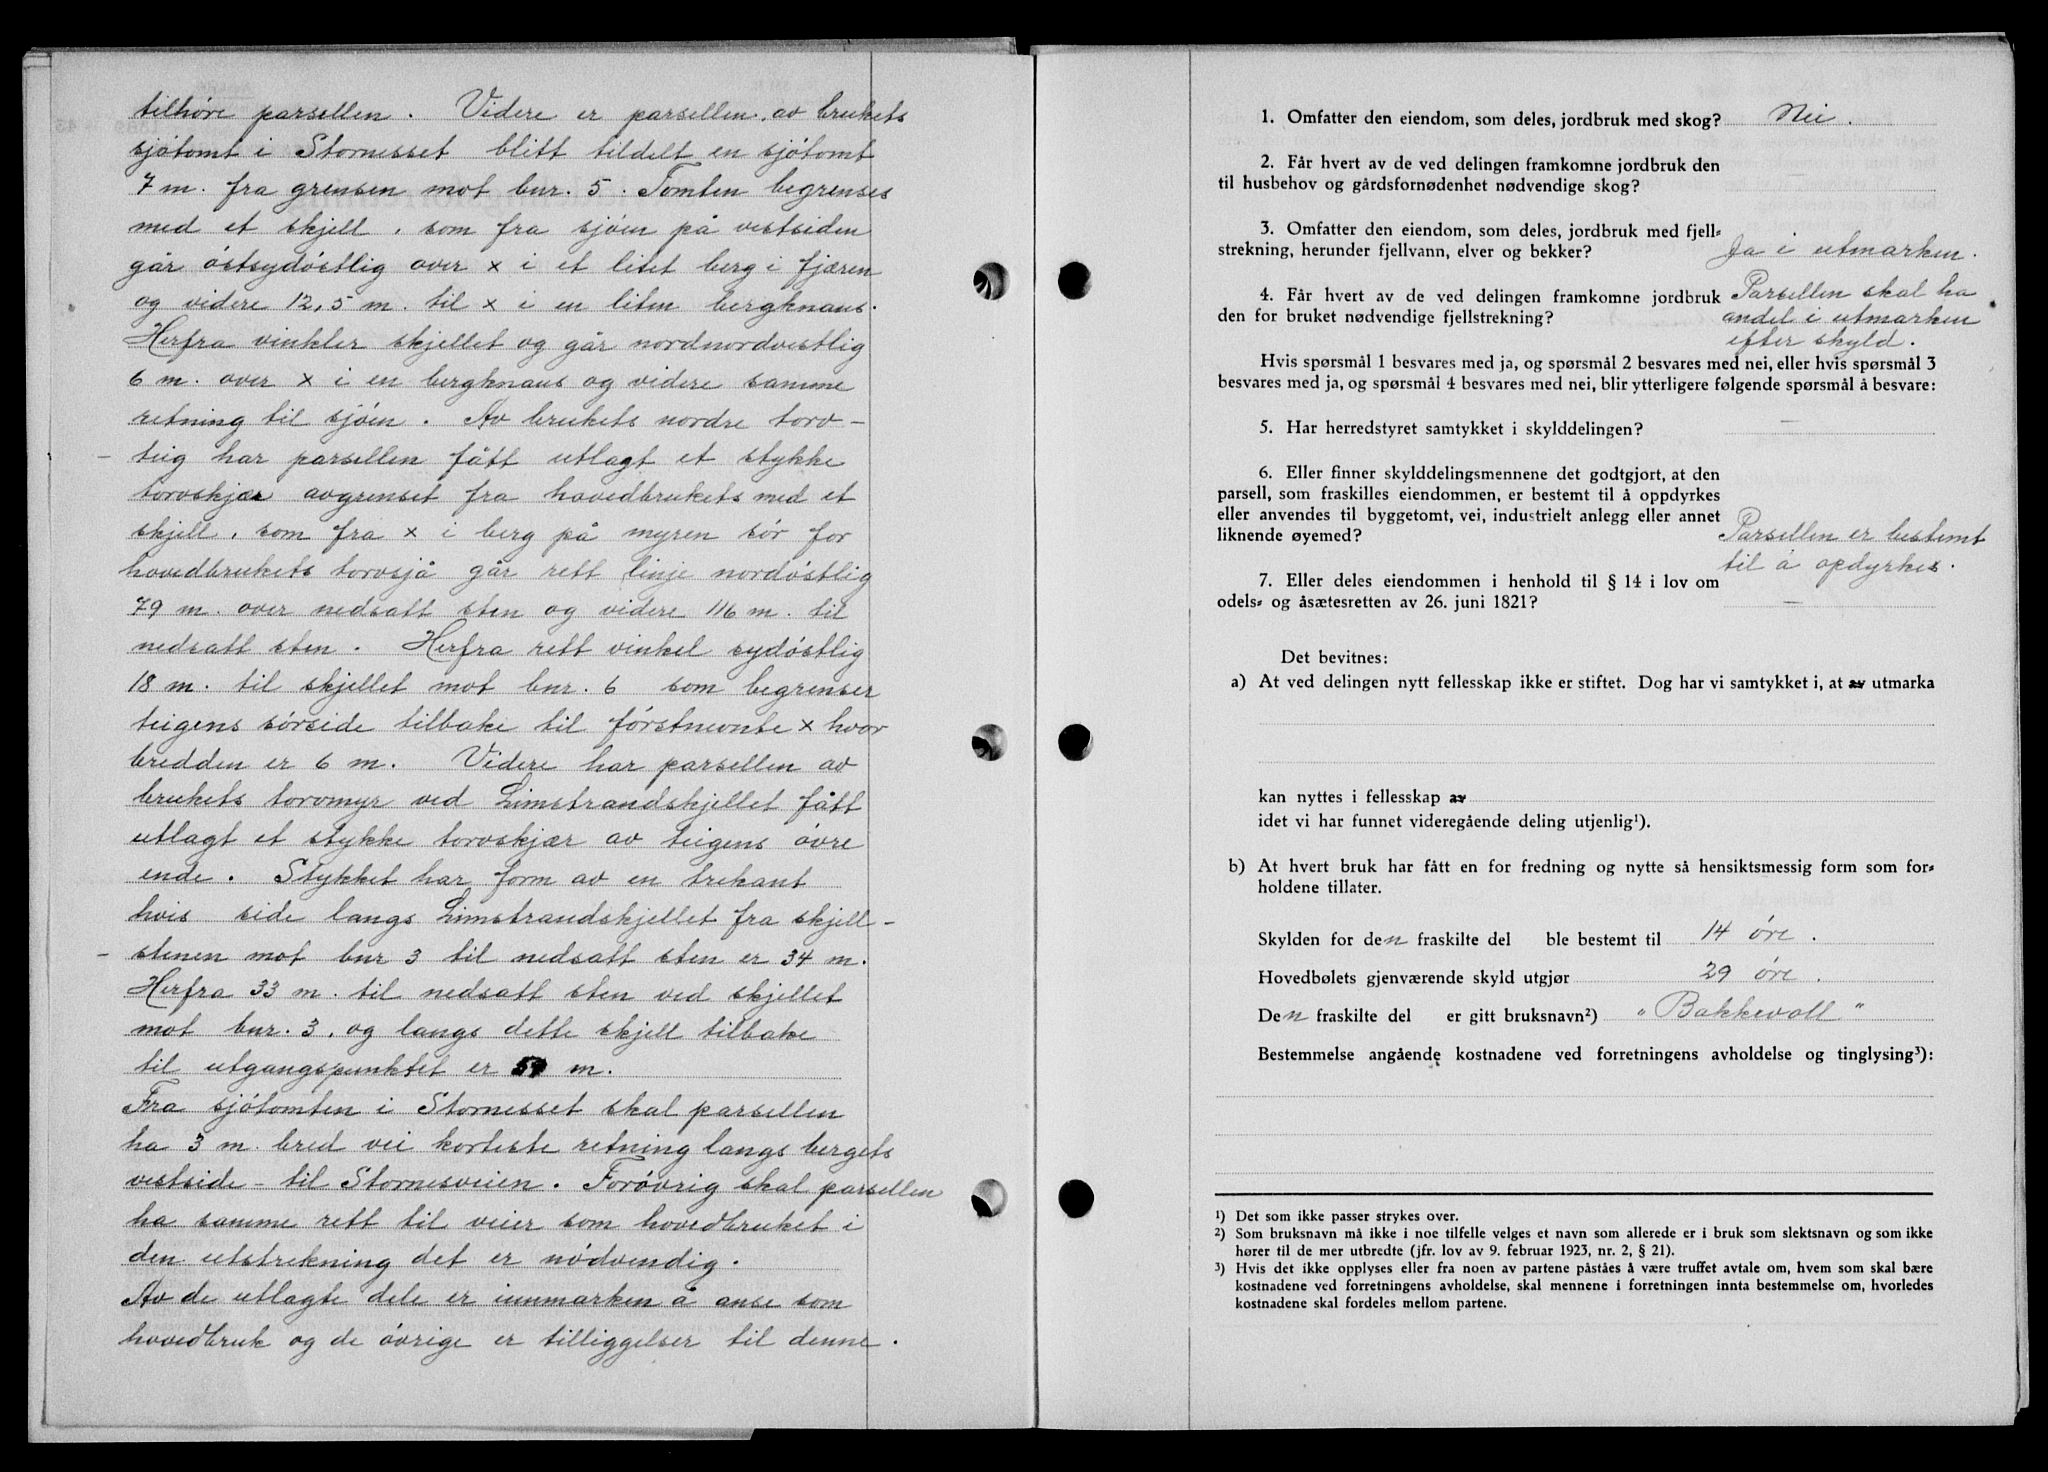 tilhøre parsellen. Videre er parsellen, av brukets
sjøtomt i Stornesset blitt tildelt en sjøtomt
7 m. fra grensen mot bnr. 5. Tomten begrenses
med et skjell, som fra sjøen på vestsiden
går østsydøstlig over x i et litet berg i fjæren
og videre 12,5 m. til x i en liten bergknaus.
Herfra vinkler skjellet og går nordnordvestlig
6 m. over x i en bergknaus og videre samme
retning til sjøen. Av brukets nordre torv-
teig har parsellen fått utlagt et stykke
torvskjær avgrenset fra hovedbrukets med et
skjell, som fra x i berg på myren sør for
hovedbrukets torvsjå går rett linje nordøstlig
79 m. over nedsatt sten og videre 116 m. til
nedsatt sten. Herfra rett vinkel sydøstlig
18 m. til skjellet mot bnr. 6 som begrenser
teigens sørside tilbake til førstnevnte x hvor
bredden er 6 m. Videre har parsellen av
brukets torvmyr ved Limstrandskjellet fått
utlagt et stykke torvskjær av teigens øvre
ende. Stykket har form av en trekant
hvis side langs Limstrandskjellet fra skjell-
stenen mot bnr 3 til nedsatt sten er 34 m.
Herfra 33 m. til nedsatt sten ved skjellet
mot bnr. 3, og langs dette skjell tilbake
til utgangspunktet er m.
Fra sjøtomten i Stornesset skal parsellen
ha 3 m. bred vei korteste retning langs bergets
vestside - til Stornesveien. Forøvrig skal parsellen
ha samme rett til veier som hovedbruket i
den utstrekning det er nødvendig.
Av de utlagte dele er innmarken å anse som
hovedbruk og de øvrige er tilliggelser til denne.
1. Omfatter den eiendom, som deles, jordbruk med skog? Nei.
2. Får hvert av de ved delingen framkomne jordbruk den
til husbehov og gårdsfornødenhet nødvendige skog? —
3. Omfatter den eiendom, som deles, jordbruk med fjell-
strekning, herunder fjellvann, elver og bekker? Ja i utmarken.
4. Får hvert av de ved delingen framkomne jordbruk Parsellen skal ha
den for bruket nødvendige fjellstrekning? andel i utmarken
efter skyld.
Hvis spørsmål 1 besvares med ja, og spørsmål 2 besvares med nei, eller hvis spørsmål 3
besvares med ja, og spørsmål 4 besvares med nei, blir ytterligere følgende spørsmål å besvare:
5. Har herredstyret samtykket i skylddelingen? —
6. Eller finner skylddelingsmennene det godtgjort, at den
parsell, som fraskilles eiendommen, er bestemt til å oppdyrkes
eller anvendes til byggetomt, vei, industrielt anlegg eller annet
liknende øyemed? Parsellen er bestemt
til å opdyrkes.
7. Eller deles eiendommen i henhold til § 14 i lov om
odels- og åsætesretten av 26. juni 1821? —
Det bevitnes:
a) At ved delingen nytt fellesskap ikke er stiftet. Dog har vi samtykket i, at av utmarka
kan nyttes i fellesskap av
idet vi har funnet videregående deling utjenlig¹).
b) At hvert bruk har fått en for fredning og nytte så hensiktsmessig form som for-
holdene tillater.
Skylden for den fraskilte del ble bestemt til 14 øre.
Hovedbølets gjenværende skyld utgjør 29 øre.
Den fraskilte del er gitt bruksnavn²) „Bakkevoll"
Bestemmelse angående kostnadene ved forretningens avholdelse og tinglysing³):
¹) Det som ikke passer strykes over.
²) Som bruksnavn må ikke i noe tilfelle velges et navn som allerede er i bruk som slektsnavn og som ikke
hører til de mer utbredte (jfr. lov av 9. februar 1923, nr. 2, § 21).
³) Hvis det ikke opplyses eller fra noen av partene påståes å være truffet avtale om, hvem som skal bære
kostnadene ved forretningens avholdelse, skal mennene i forretningen innta bestemmelse om, hvorledes
kostnadene skal fordeles mellom partene.